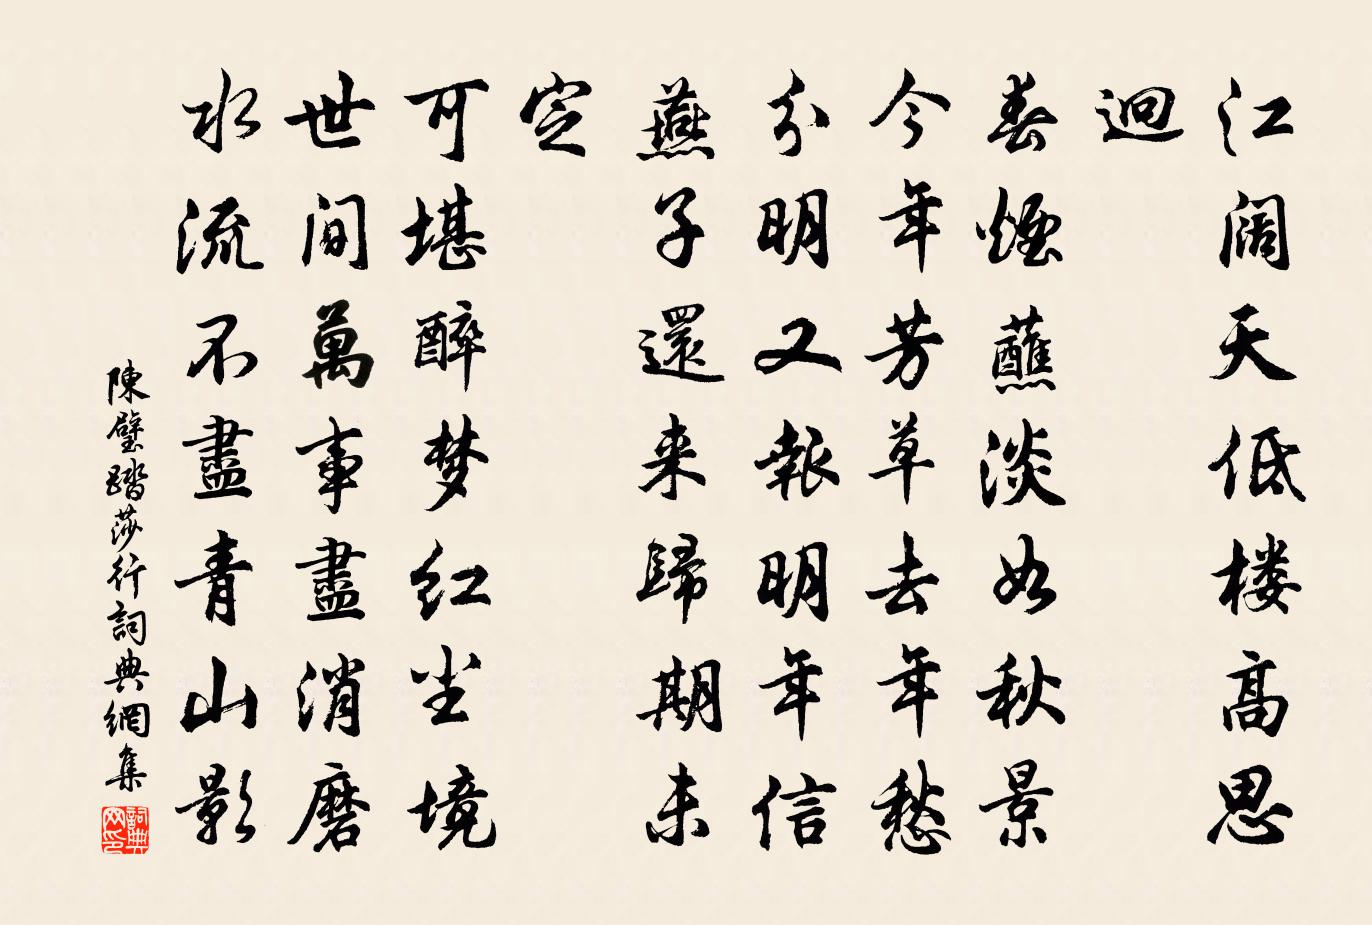 江阔天低楼高思
迥
春煙蘸淡如秋景
今年芳草去年愁
分明又報明年信
燕子還来歸期未
定
可堪醉梦红尘境
世间萬事盡消磨
水流不盡青山影
陳璧踏莎行詞典網集
詞典网印